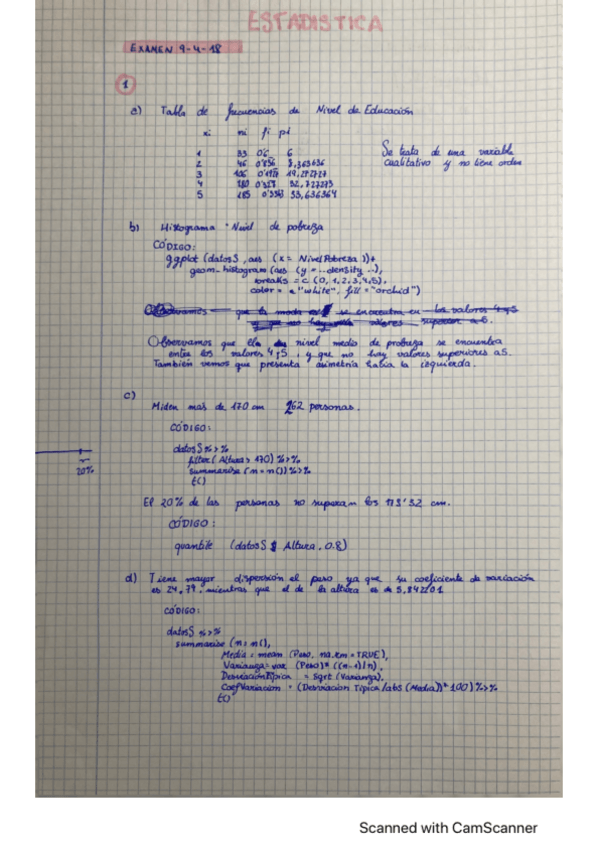 ESTADISTICA
EXAMEN 9-4-18
1
a) Tabla de frecuencias de Nivel de Educación
xi ni fi pi
1 33 0'6 6
2 46
3 106
4 180 32,727273
5 185 33,636364
Se trata de una variable
cualitativo y no tiene orden
b) Histograma Nivel de pobreza
CÓDIGO:
ggplot (datos5, aes (x = NivelPobreza))+
geom_histogram (aes (y = ..density..),
breaks = c (0,1,2,3,4,5),
color = "white", fill = "orchid")
Observamos que la moda se encuentra en los valores 4 y 5
y que no hay valores superior a 6.
Observamos que el nivel medio de probreza se encuentra
entre los valores 4 y 5, y que no hay valores superiores a 5.
También vemos que presenta asimetría hacia la izquierda.
c)
Miden más de 170 cm 262 personas.
CÓDIGO:
datos5 %>%
filter (Altura > 170) %>%
summarise (n = n()) %>%
t()
20%
El 20% de las personas no superan los cm.
CÓDIGO:
quantile (datos5 $ Altura, 0.8)
d) Tiene mayor dispersión el peso ya que su coeficiente de variación
es 24,79, mientras que el de la altura es de 5,842201
CÓDIGO:
datos5 %>%
summarise (n = n(),
Media = mean (Peso, na.rm = TRUE),
Varianza = var (Peso)* ((n-1)/n),
DesviaciónTípica = sqrt (Varianza),
CoefVariacion = (Desviacion Tipica /abs (Media))* 100) %>%
t()
Scanned with CamScanner